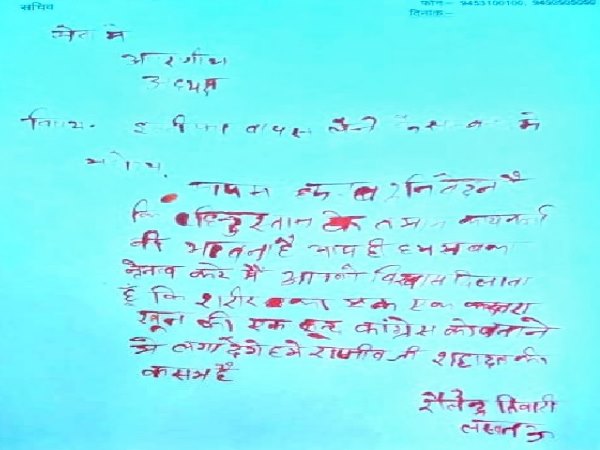 सचिव
फोन:- 9453100100,
दिनांक:-
सेवा में
आदरणीय
अध्यक्ष
विषय- इस्तीफा वापस लेने के सम्बन्ध में
महोदय,
निवेदन है
कि हिन्दुस्तान के तमाम कार्यकर्ता
की भावना है आप ही हम सबका
नेतृत्व करें मैं आपको विश्वास दिलाता
हूँ कि शरीर का एक एक कतरा
खून की एक बूंद कांग्रेस को बनाने
में लगा देंगे हमें राजीव जी शहादत की
कसम है
शैलेन्द्र तिवारी
लखनऊ